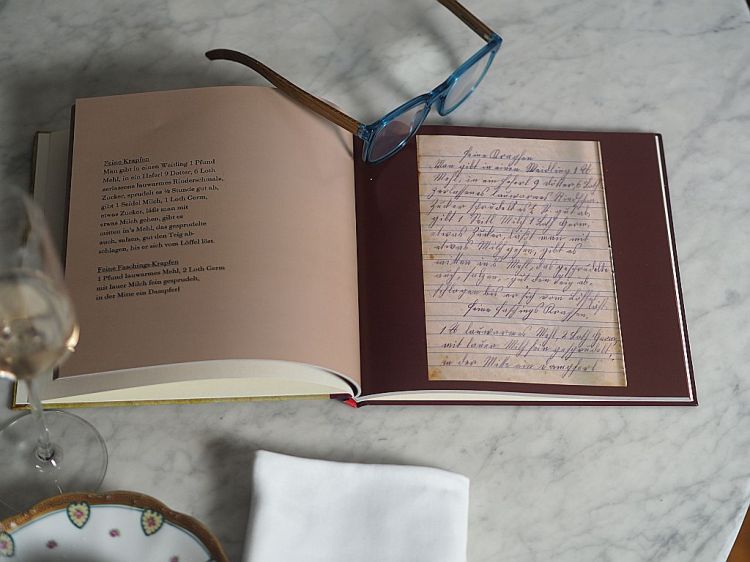 Feine Krapfen
Man gibt in einen Weitling 1 Pfund
Mehl, in ein Haferl 9 Dotter, 6 Loth
zerlassenes lauwarmes Rinderschmalz,
Zucker, sprudelt es ¼ Stunde gut ab,
gibt 1 Seidel Milch, 1 Loth Germ,
etwas Zucker, läßt man mit
etwas Milch gehen, gibt es
mitten in's Mehl, das gesprudelte
auch, salzen, gut den Teig ab-
schlagen, bis er sich vom Löffel löst.
Feine Faschings-Krapfen
1 Pfund lauwarmes Mehl, 2 Loth Germ
mit lauer Milch fein gesprudelt,
in der Mitte ein Dampferl
Feine Krapfen
Man gibt in einen Weidling 1
Mehl, in ein Haferl 9 Dotter, 6 Loth
zerlassenes lauwarmes
Zucker sprudelt es gut ab
gibt 1 Milch 1 Loth Germ,
etwas Zucker läßt man mit
etwas Milch gehen, gibt es
mitten ins Mehl, das gesprudelte
auch, salzen, gut den Teig ab-
schlagen bis er sich vom Löffel löst.
Feine Faschings Krapfen.
1 lauwarmes Mehl, 2 Loth Germ
mit lauer Milch fein gesprudelt,
in der Mitte ein Dampferl